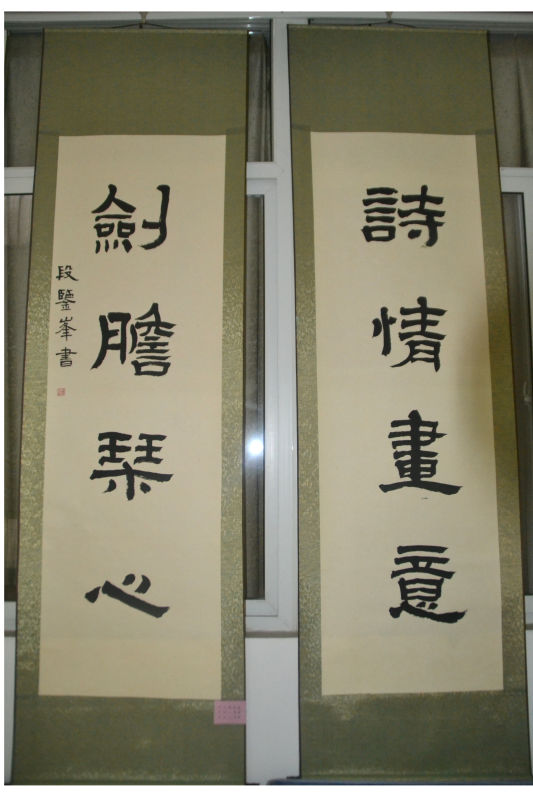 詩情畫意
劍膽琹心
段鑒峯書